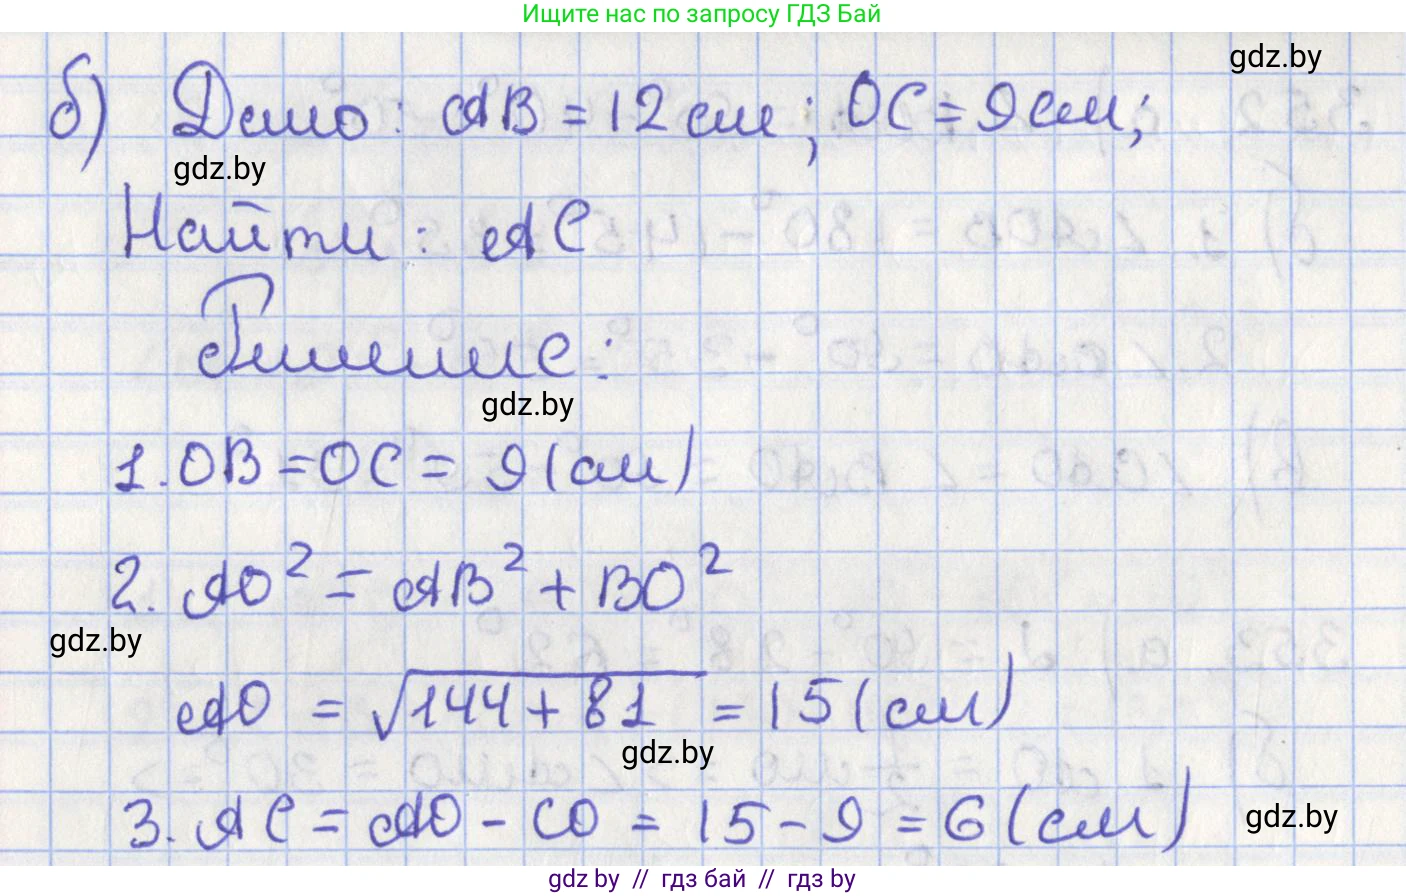 Ищите нас по запросу ГДЗ Бай
gdz.by
б) Дано: AB = 12 см; OC = 9 см;
gdz.by
Найти: AC
Решение:
gdz.by
1. OB = OC = 9 (см)
2. AO² = AB² + BO²
gdz.by
AO = √144 + 81 = 15 (см)
gdz.by
3. AC = AO - CO = 15 - 9 = 6 (см)
gdz.by
gdz by // гдз бай // гдз by